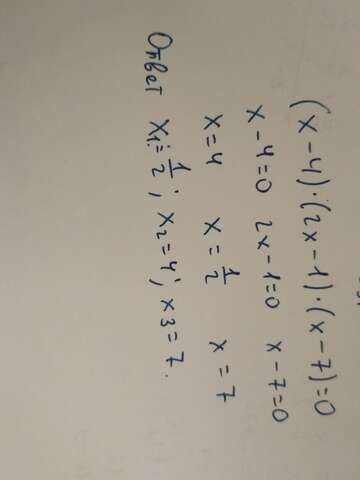 (x-4)·(2x-1)·(x-7)=0
x-4=0 2x-1=0 x-7=0
x=4 x=1/2 x=7
Ответ x1=1/2; x2=4; x3=7.